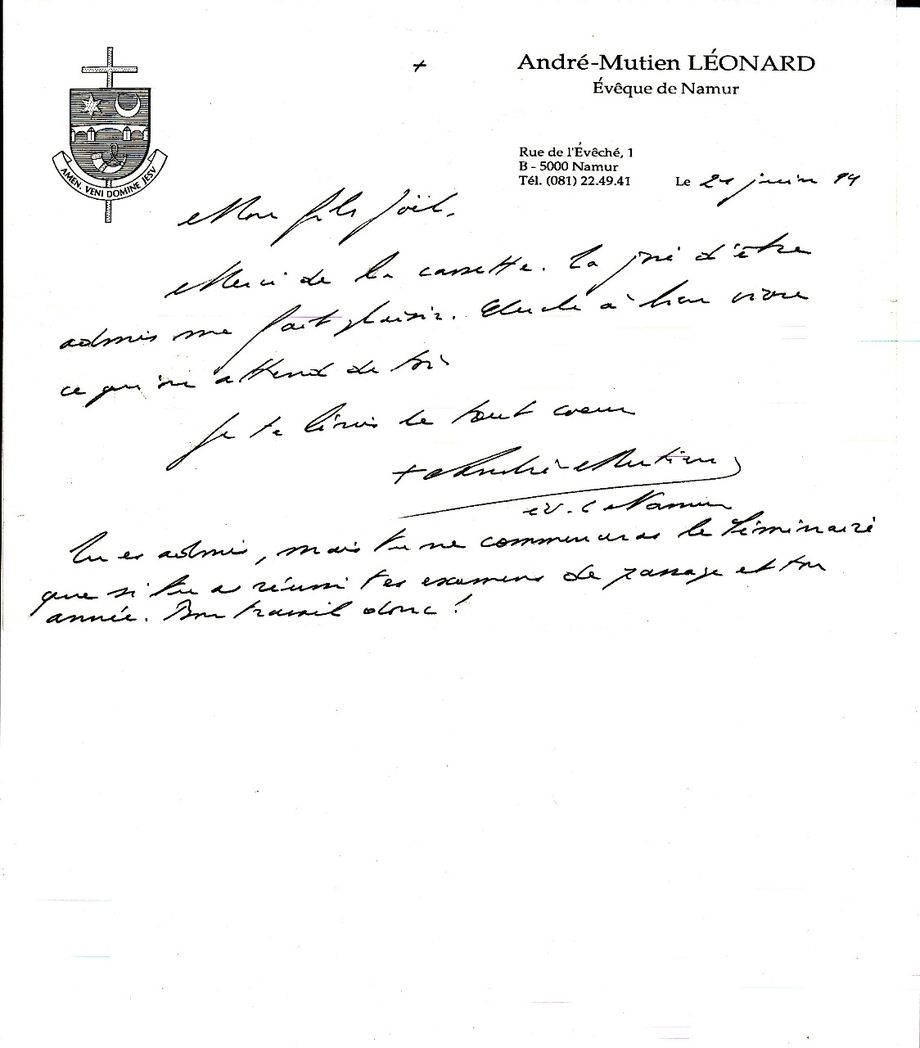 +
André-Mutien LÉONARD
Évêque de Namur
Rue de l'Évêché, 1
B - 5000 Namur
Tél. (081) 22.49.41
Le 21 juin 94
AMEN, VENI DOMINE JESV
Mon fils Joël,
Merci de la cassette. Ta joie d'être
admis me fait plaisir. à bien vivre
ce qu'on attend de toi.
Je te bénis de tout coeur
+ André-Mutien
év. de Namur
Tu es admis, mais tu ne commenceras le Séminaire
que si tu as réussi tes examens de passage et ton
année. Bon travail donc !